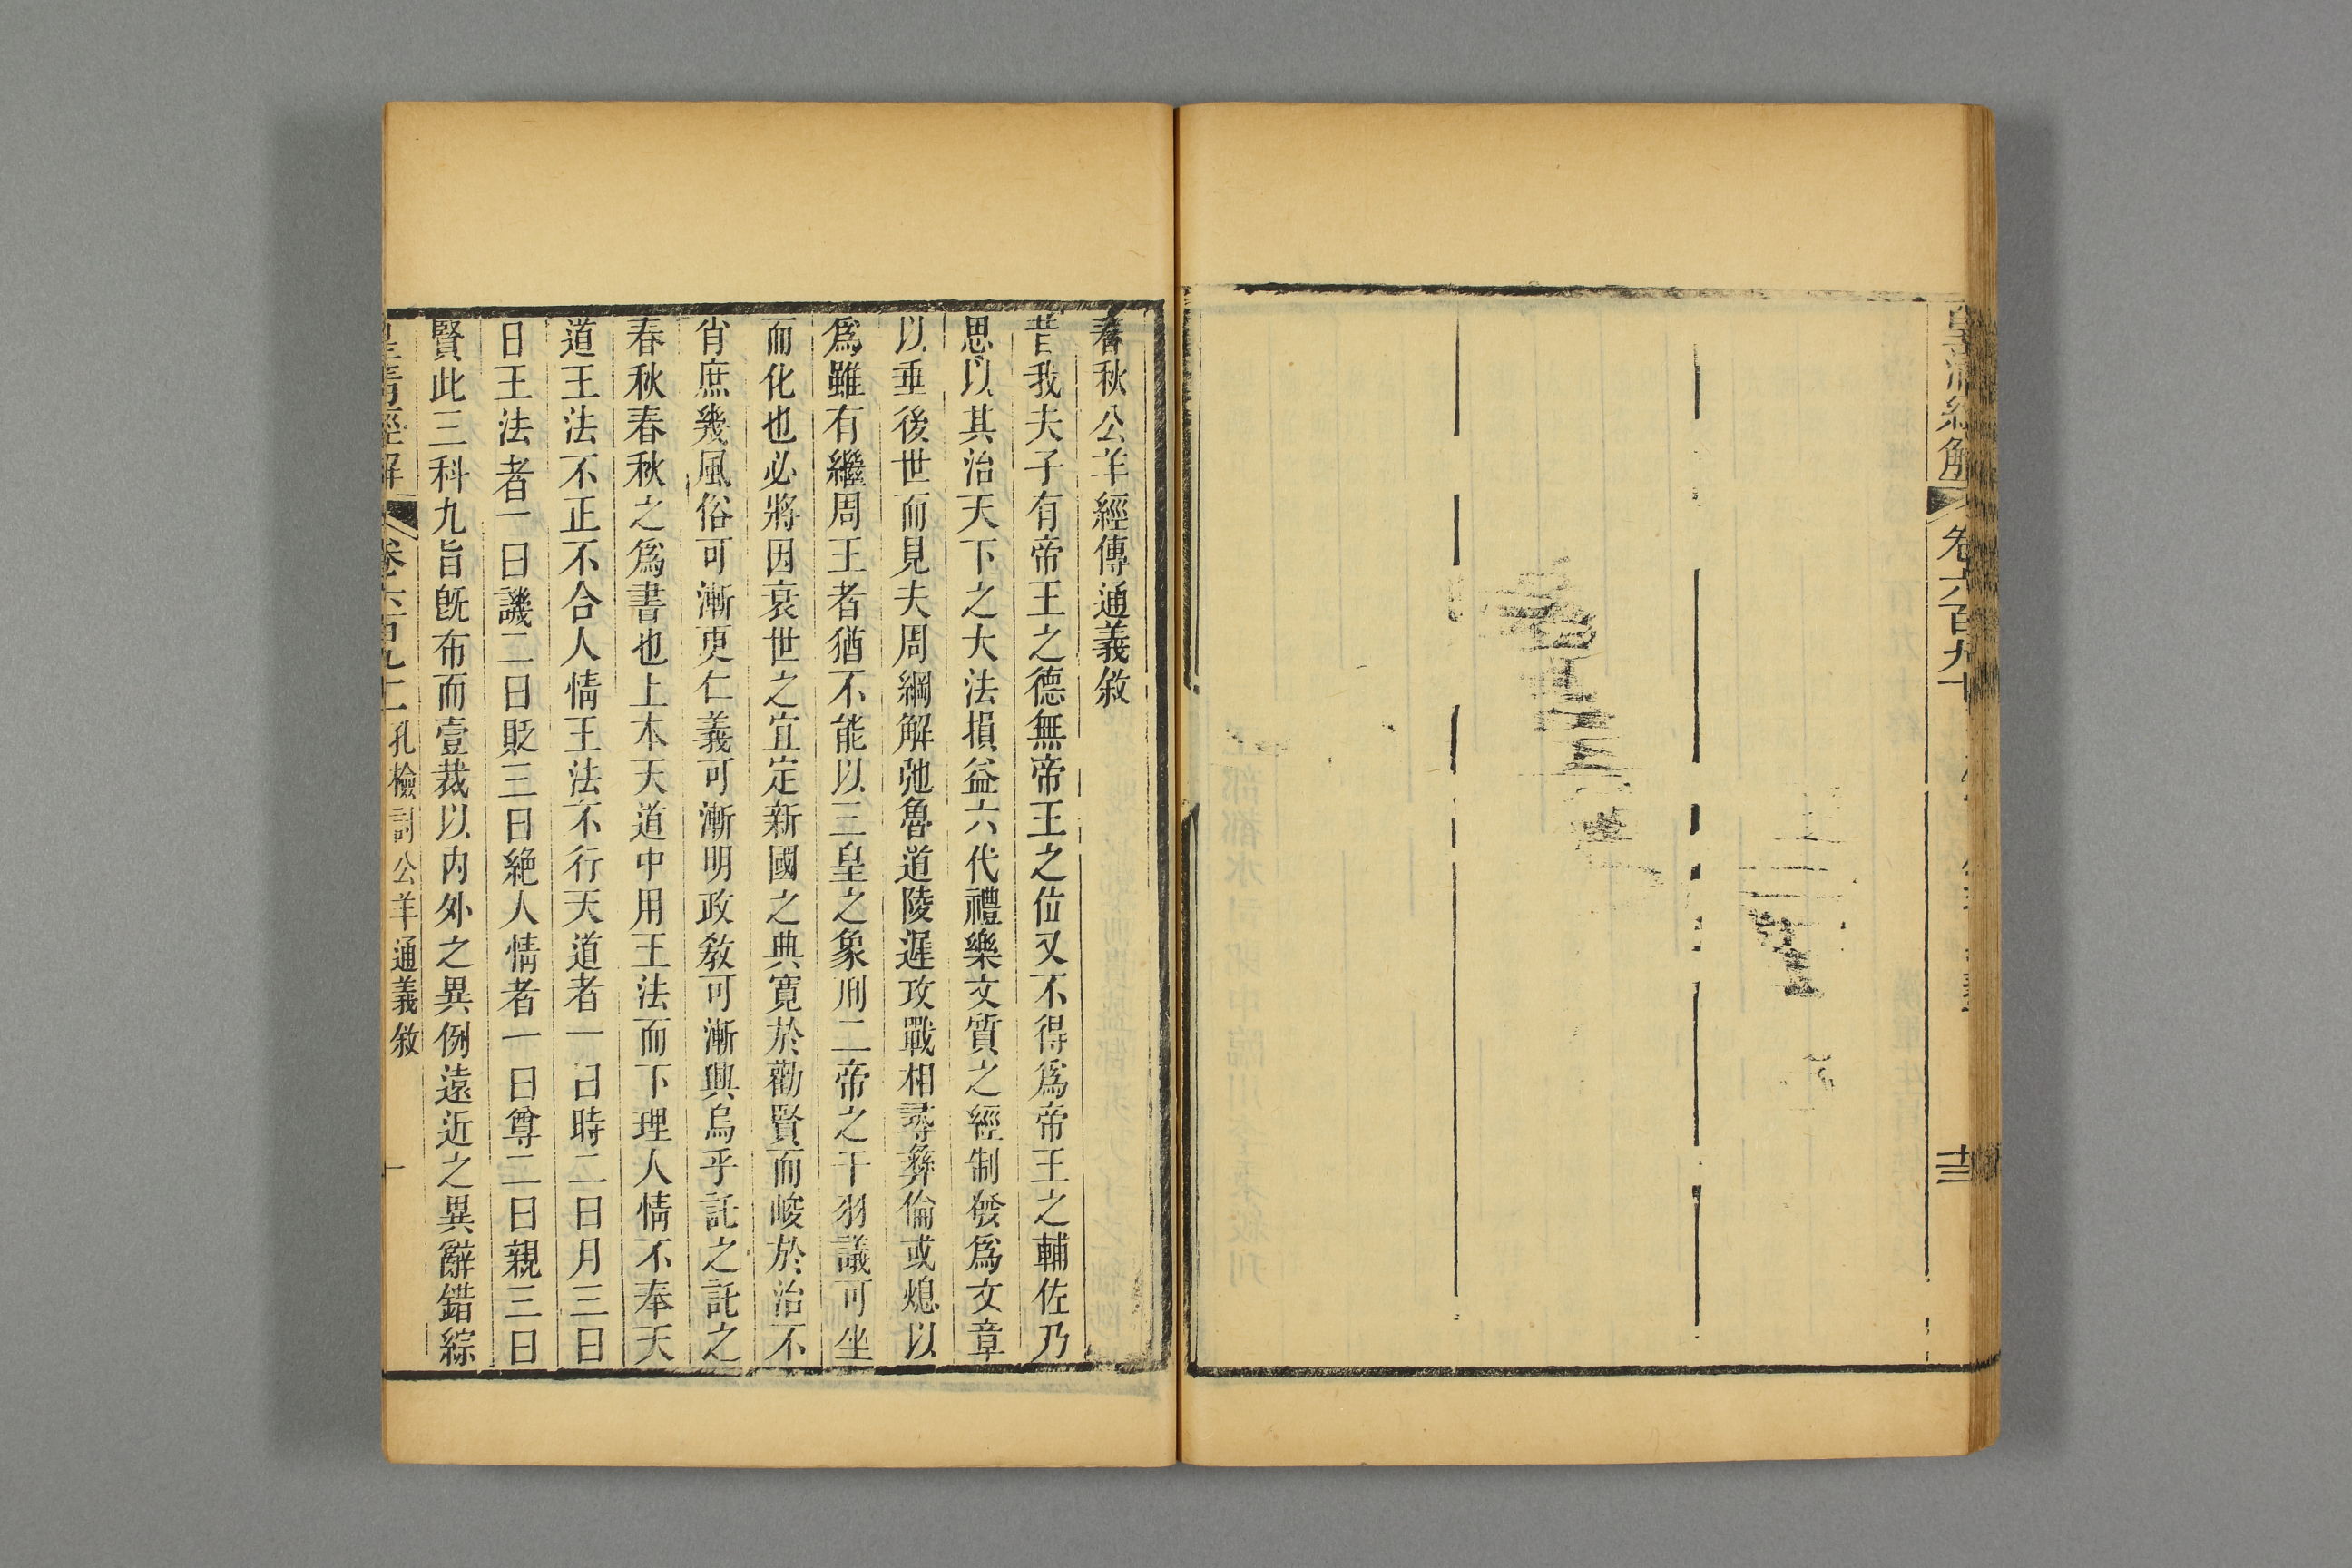 皇清經解 卷六百九十
十三
春秋公羊經傳通義敘
昔我夫子有帝王之德無帝王之位又不得爲帝王之輔佐乃
思以其治天下之大法損益六代禮樂文質之經制發爲文章
以垂後世而見夫周綱解弛魯道陵遲攻戰相尋彝倫或熄以
爲雖有繼周王者猶不能以三皇之象刑二帝之干羽議可坐
而化也必將因衰世之宜定新國之典寬於勸賢而峻於治不
肖庶幾風俗可漸更仁義可漸明政敎可漸興烏乎託之託之
春秋春秋之爲書也上本天道中用王法而下理人情不奉天
道王法不正不合人情王法不行天道者一曰時二曰月三曰
日王法者一曰譏二曰貶三曰絶人情者一曰尊二曰親三曰
賢此三科九旨旣布而壹裁以内外之異例遠近之異辭錯綜
皇清經解 卷六百九十二 孔檢討公羊通義敘 一